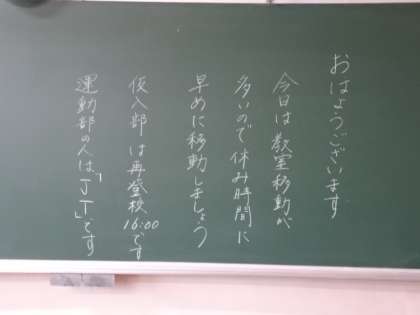 おはようございます
今日は教室移動が
多いので休み時間に
早めに移動しましょう
仮入部は再登校16:00です
運動部の人は「JT」です